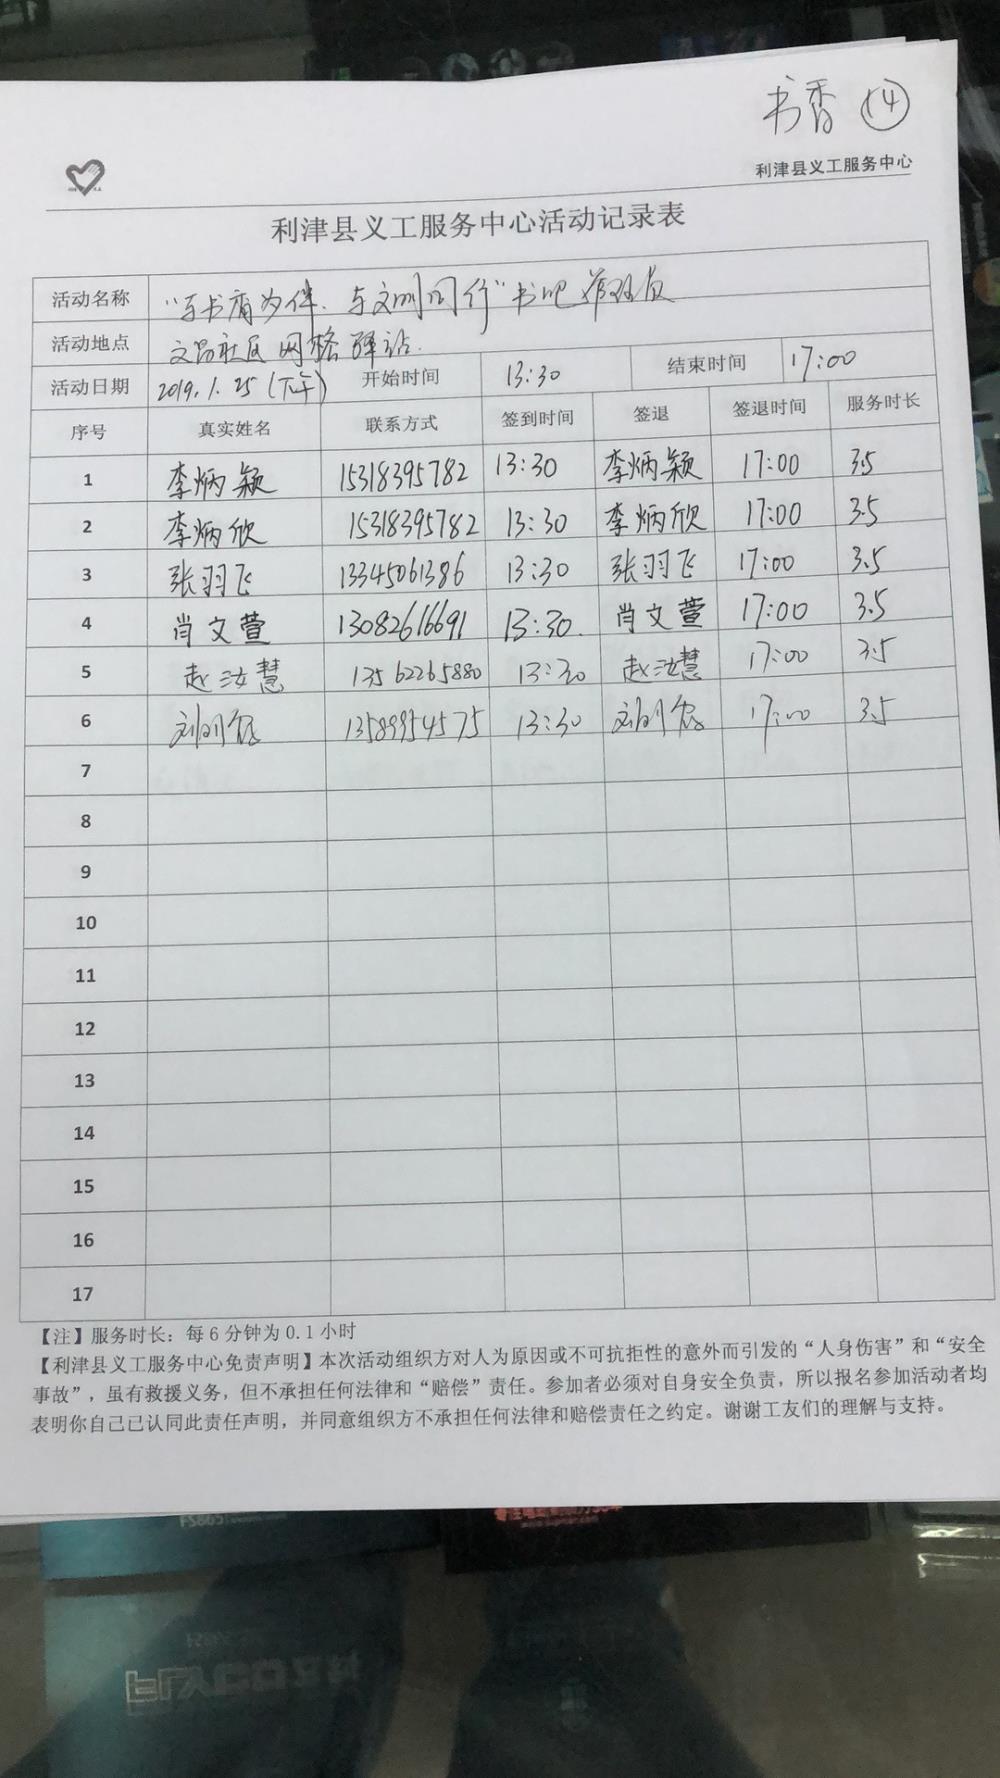 书香 14
利津县义工服务中心
利津县义工服务中心活动记录表
活动名称 "与书为伴、与文明同行"书吧管理员
活动地点 文昌社区网格驿站
活动日期 2019.1.25(下午) 开始时间 13:30 结束时间 17:00
序号 真实姓名 联系方式 签到时间 签退 签退时间 服务时长
1 李炳颖 15318395782 13:30 李炳颖 17:00 3.5
2 李炳欣 15318395782 13:30 李炳欣 17:00 3.5
3 张羽飞 13345061386 13:30 张羽飞 17:00 3.5
4 肖文萱 13082616691 13:30 肖文萱 17:00 3.5
5 赵汝慧 13562265880 13:30 赵汝慧 17:00 3.5
6 刘 13589954575 13:30 刘 17:00 3.5
7
8
9
10
11
12
13
14
15
16
17
【注】服务时长：每6分钟为0.1小时
【利津县义工服务中心免责声明】本次活动组织方对人为原因或不可抗拒性的意外而引发的“人身伤害”和“安全
事故”，虽有救援义务，但不承担任何法律和“赔偿”责任。参加者必须对自身安全负责，所以报名参加活动者均
表明你自己已认同此责任声明，并同意组织方不承担任何法律和赔偿责任之约定。谢谢工友们的理解与支持。